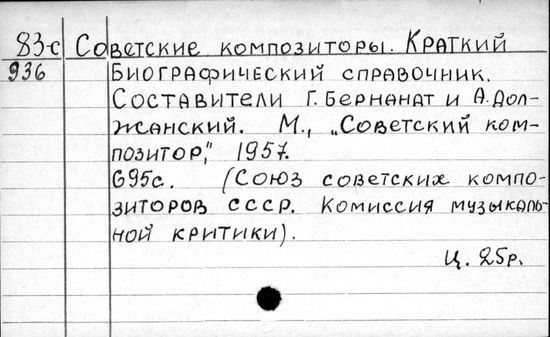 83-с Советские композиторы. Краткий
936 Биографический справочник.
Составители Г. Бернандт и А. Дол-
жанский. М., „Советский ком-
позитор," 1957.
695с. (Союз советских компо-
зиторов СССР. Комиссия музыкаль-
ной критики).
Ц. 25р.